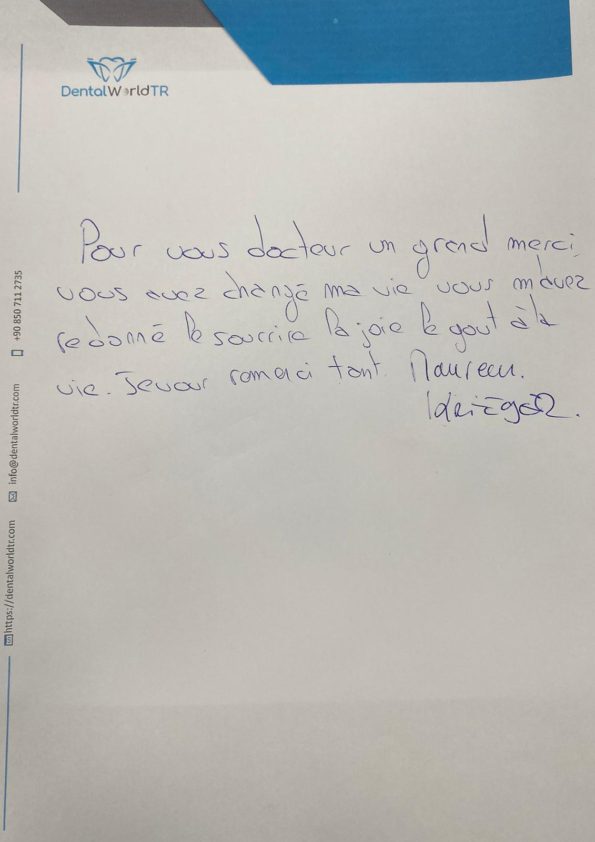 DentalWorldTR
Pour vous docteur un grand merci
vous avez changé ma vie vous m'avez
redonné le sourrire la joie le gout à la
vie. Jevour remerci tant. Maureen.
+90 850 711 2735
info@dentalworldtr.com
https://dentalworldtr.com